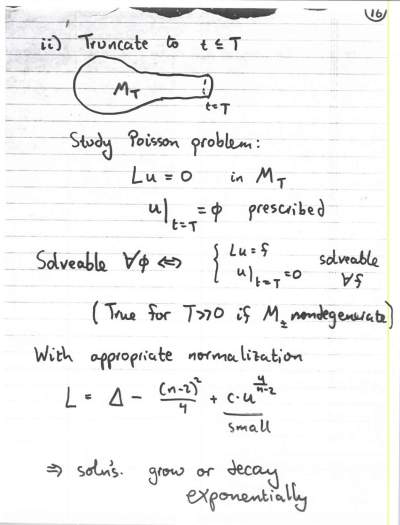 16
ii) Truncate to t ≤ T
M_T
t=T
Study Poisson problem:
Lu = 0 in M_T
u|_{t=T} = φ prescribed
Solveable ∀φ ⇔ { Lu = f solveable
u|_{t=T} = 0 ∀f
(True for T>>0 if M_± nondegenerate)
With appropriate normalization
L = Δ - (n-2)²/4 + c·u^{4/(n-2)}
small
⇒ soln's. grow or decay
exponentially